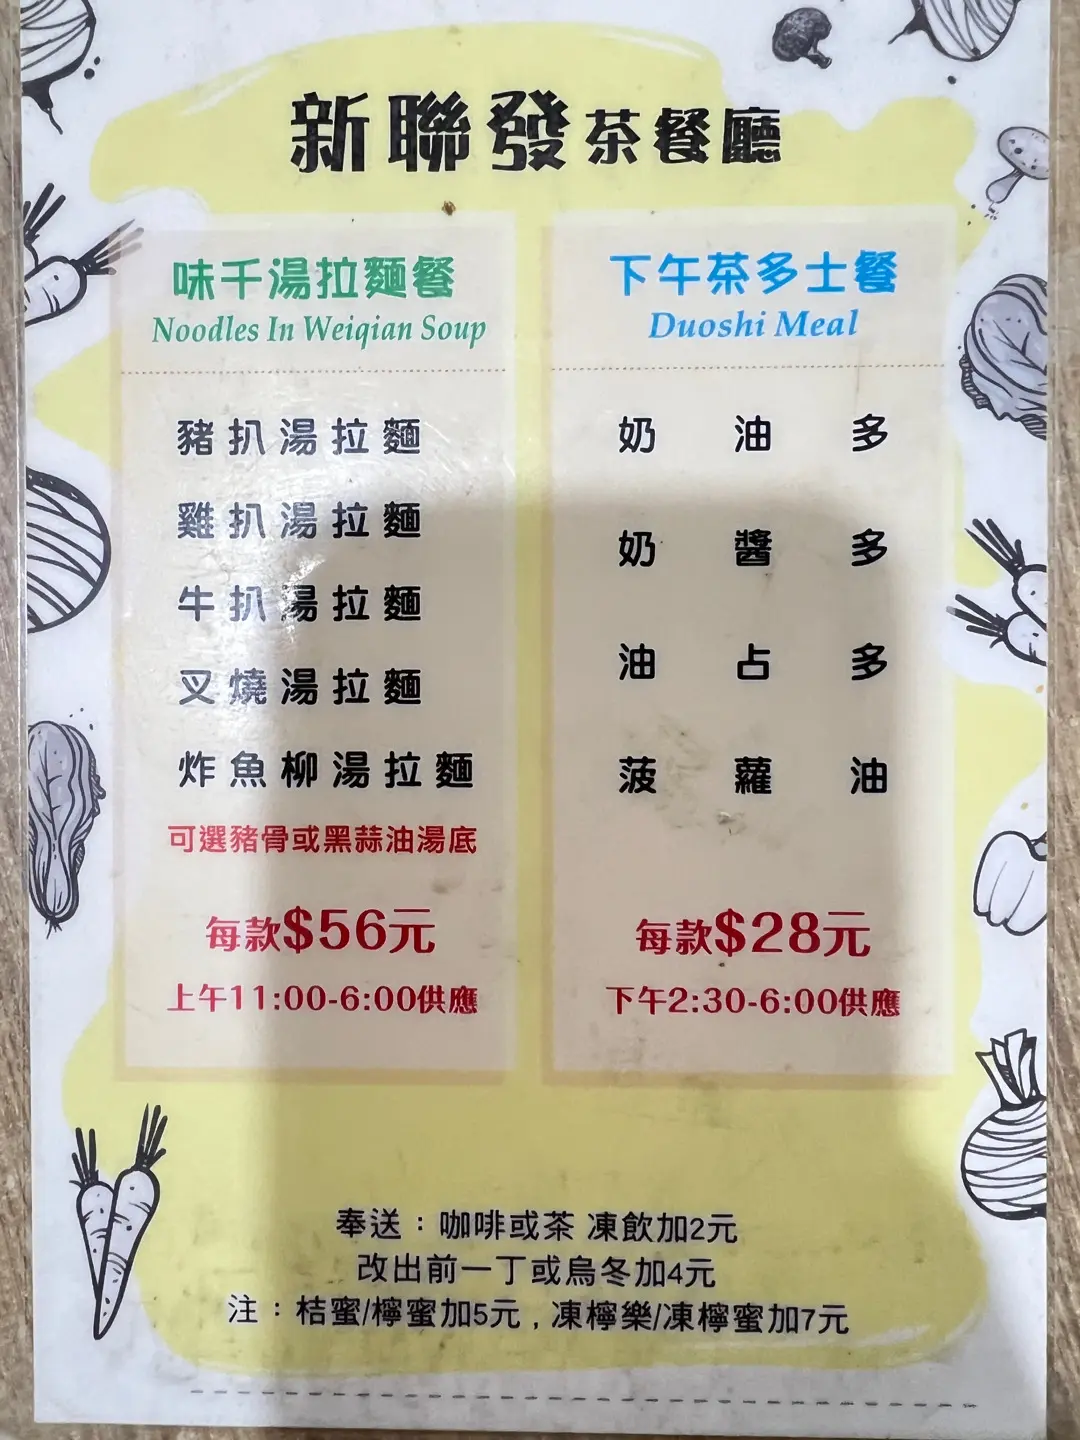 新聯發茶餐廳
味千湯拉麵餐
Noodles In Weiqian Soup
豬扒湯拉麵
雞扒湯拉麵
牛扒湯拉麵
叉燒湯拉麵
炸魚柳湯拉麵
可選豬骨或黑蒜油湯底
每款$56元
上午11:00-6:00供應
下午茶多士餐
Duoshi Meal
奶油多
奶醬多
油占多
菠蘿油
每款$28元
下午2:30-6:00供應
奉送：咖啡或茶 凍飲加2元
改出前一丁或烏冬加4元
注：桔蜜/檸蜜加5元，凍檸樂/凍檸蜜加7元